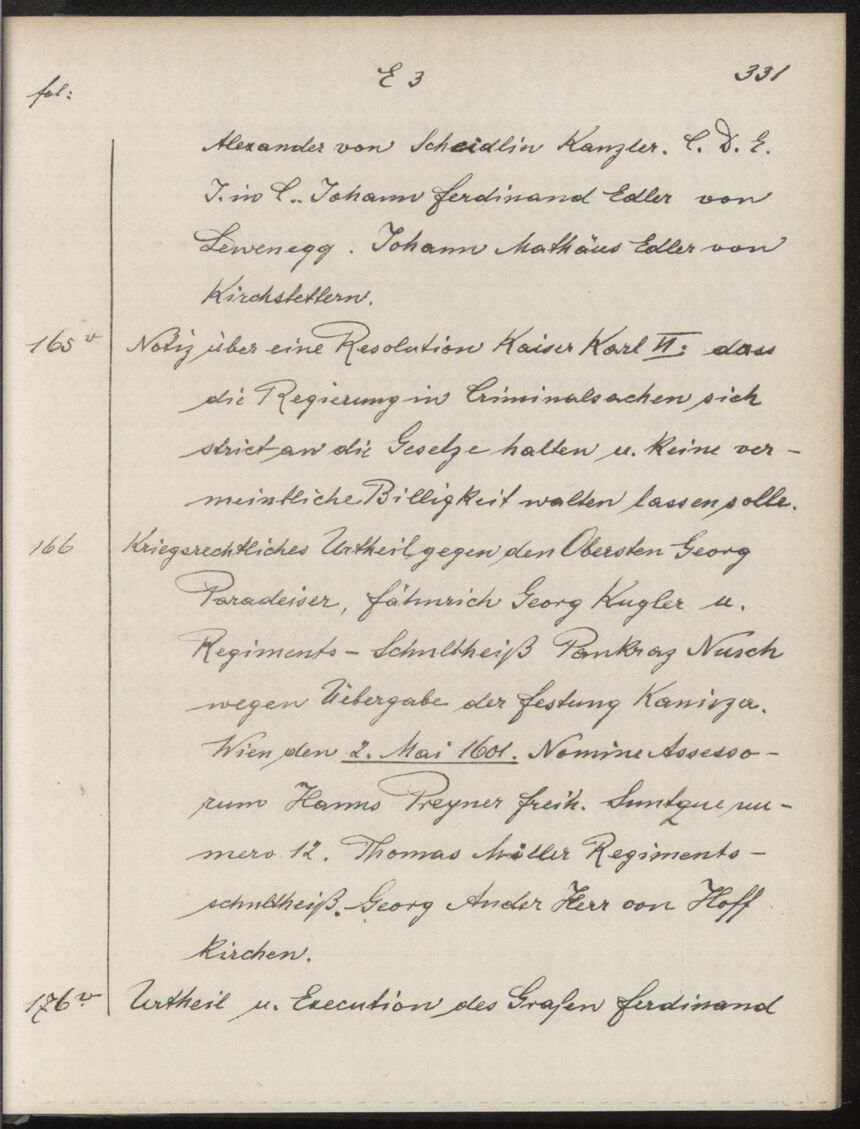 E 3 331
fol:
Alexander von Scheidlin Kanzler. C. D. E.
J. in C.. Johann Ferdinand Edler von
Lewenegg. Johann Mathäus Edler von
Kirchstettern.
165 v Notiz über eine Resolution Kaiser Karl VI: dass
die Regierung in Criminalsachen sich
strict an die Gesetze halten u. keine ver-
meintliche Billigkeit walten lassen solle.
166 Kriegsrechtliches Urtheil gegen den Obersten Georg
Paradeiser, Fähnrich Georg Kugler u.
Regiments-Schultheiß Pankraz Nusch
wegen Uebergabe der Festung Kanisza.
Wien den 2. Mai 1601. Nomine Assesso-
rum Hanns Preyner Freih. Suntque nu-
mero 12. Thomas Müller Regiments-
schultheiß. Georg Ander Herr von Hoff
kirchen.
176 v. Urtheil u. Execution des Grafen Ferdinand